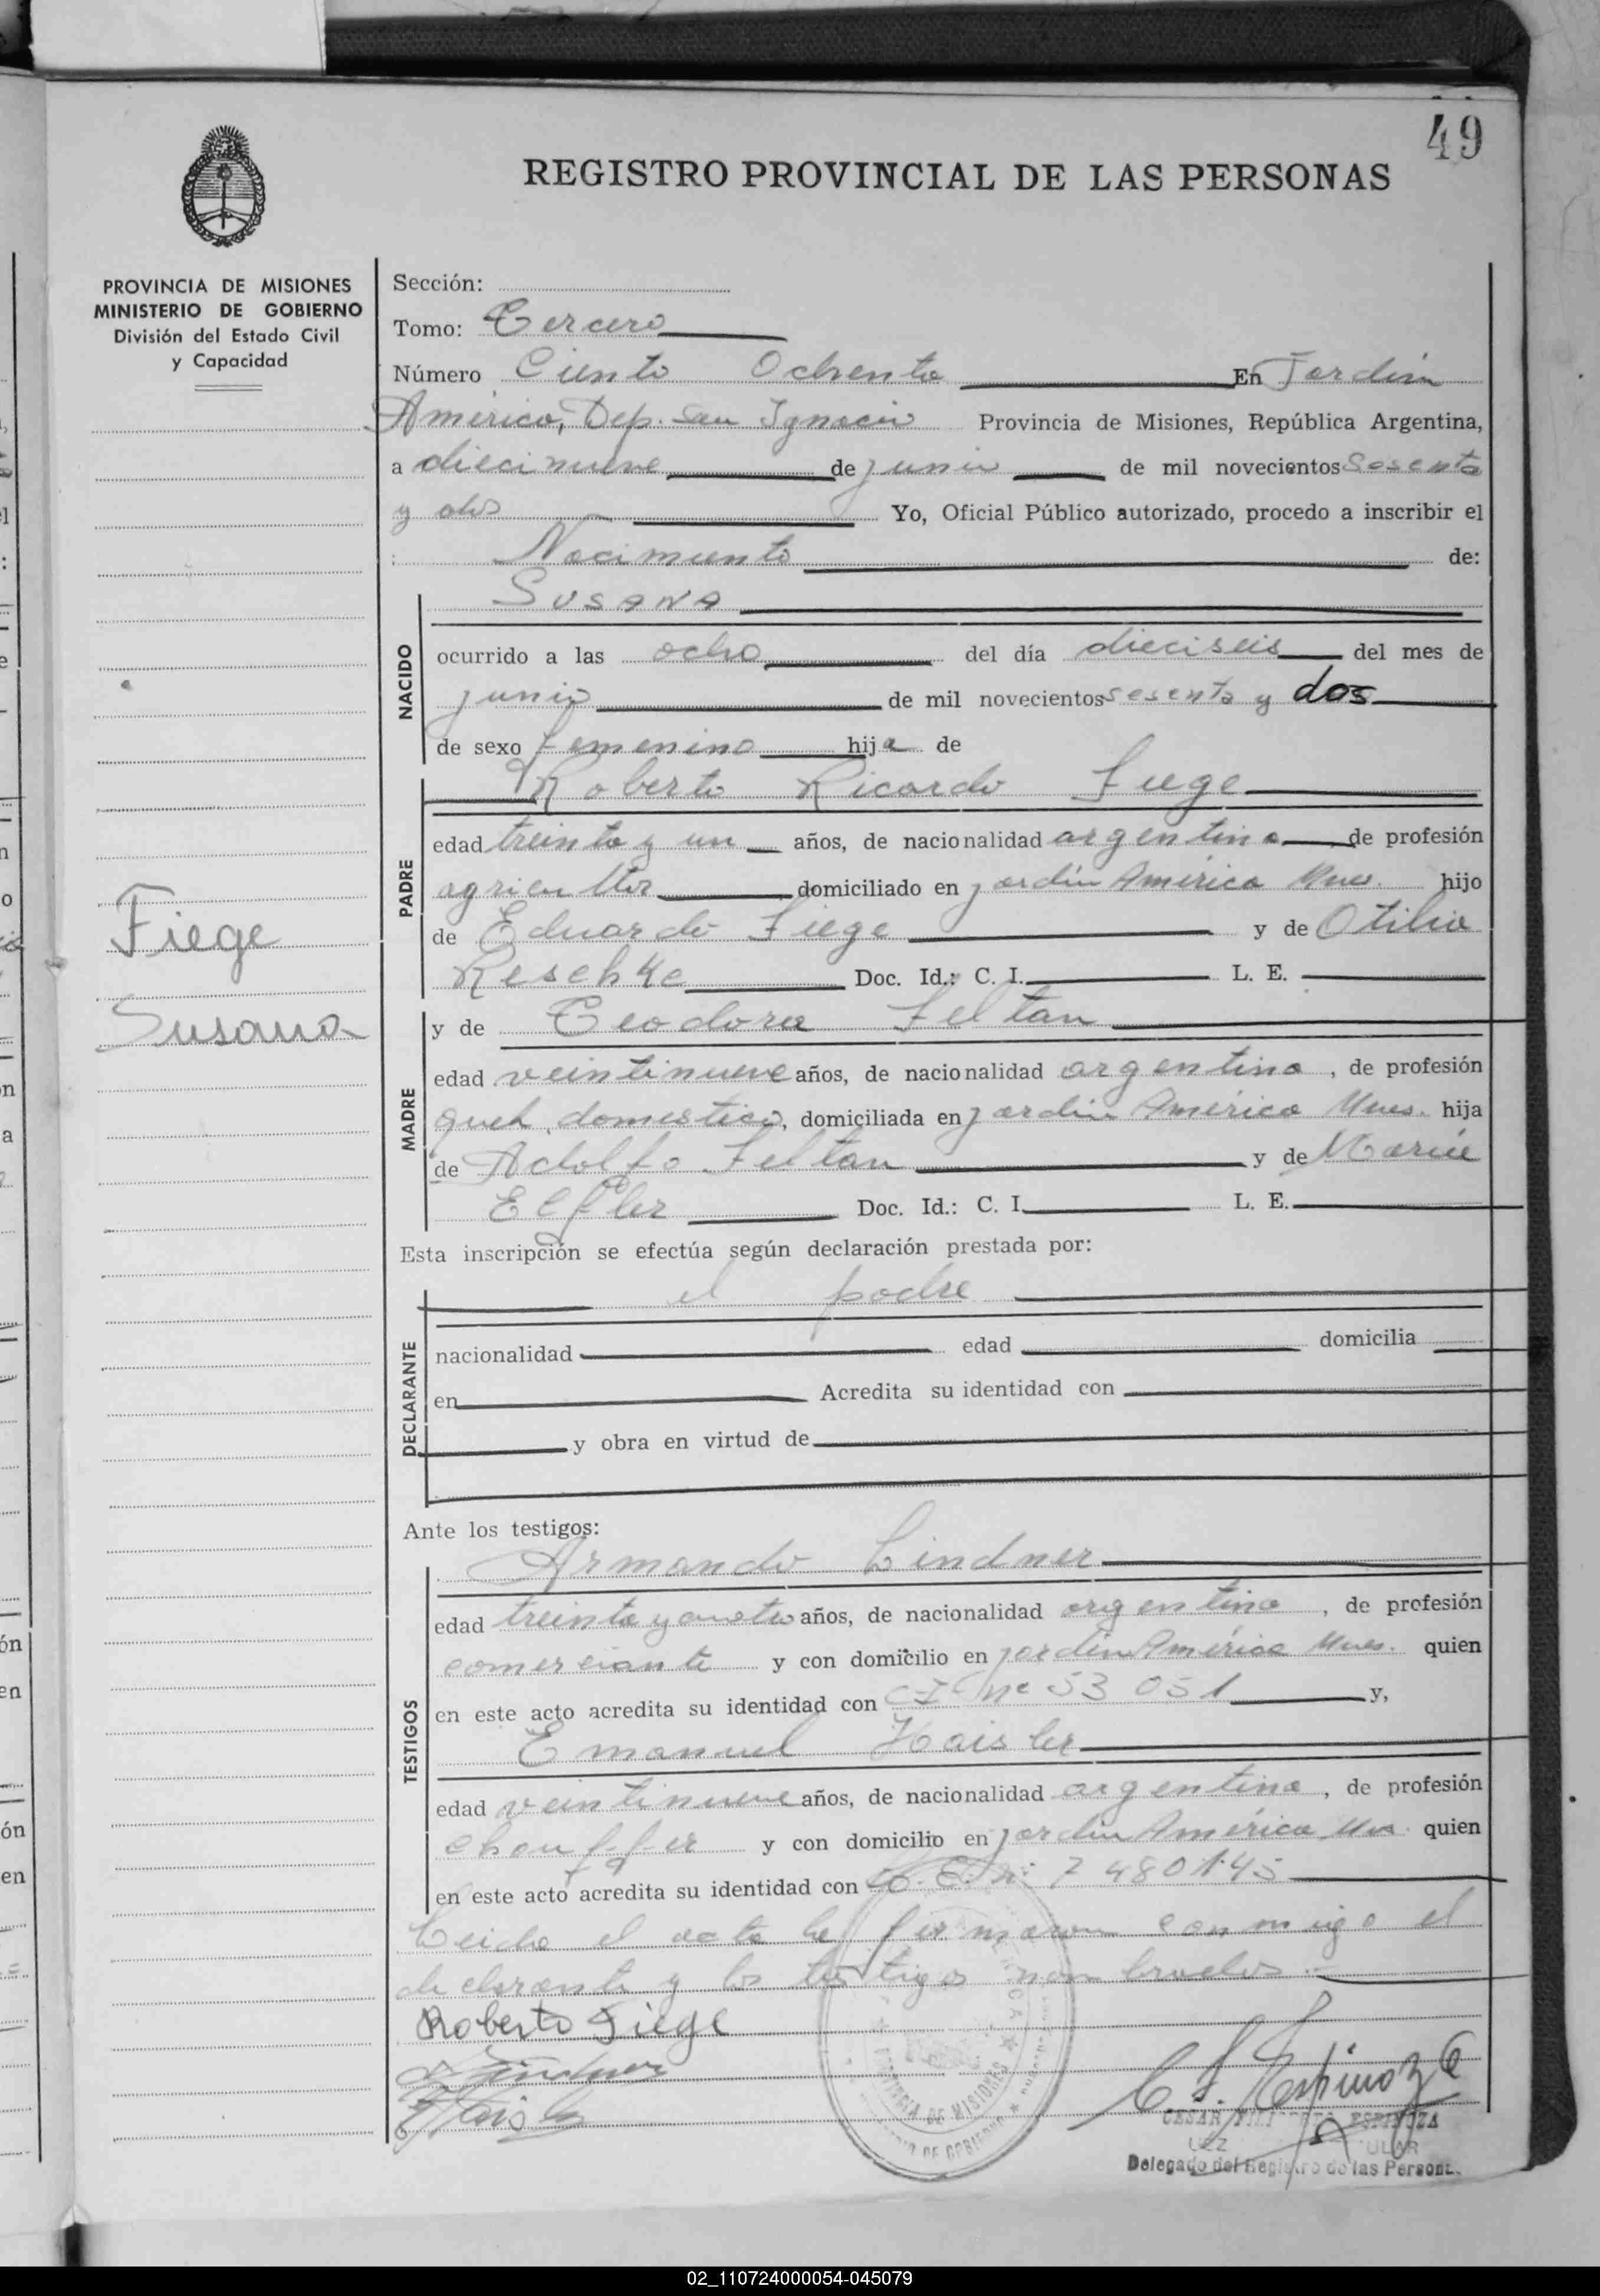 49
REGISTRO PROVINCIAL DE LAS PERSONAS
PROVINCIA DE MISIONES
MINISTERIO DE GOBIERNO
División del Estado Civil
y Capacidad
Sección:
Tomo: Tercero
Número Ciento Ochenta En Jardín
América, Dep. San Ignacio Provincia de Misiones, República Argentina,
a diecinueve de junio de mil novecientos sesenta
y dos Yo, Oficial Público autorizado, procedo a inscribir el
Nacimiento de:
SUSANA
NACIDO
ocurrido a las ocho del día dieciseis del mes de
junio de mil novecientos sesenta y dos
de sexo femenino hija de
PADRE
Roberto Ricardo Fiege
edad treinta y un años, de nacionalidad argentina de profesión
agricultor domiciliado en jardín América Mnes. hijo
de Eduardo Fiege y de Otilia
Reschke Doc. Id.: C. I. L. E.
Fiege
Susana
MADRE
y de Teodora Feltan
edad veintinueve años, de nacionalidad argentina, de profesión
queh. domestico, domiciliada en jardin América Mnes. hija
de Adolfo Feltan y de María
Doc. Id.: C. I. L. E.
Esta inscripción se efectúa según declaración prestada por:
DECLARANTE
el padre
nacionalidad edad domicilia
en Acredita su identidad con
y obra en virtud de
Ante los testigos:
TESTIGOS
Armando Lindner
edad treinta y cuatro años, de nacionalidad argentina, de profesión
comerciante y con domicilio en jardin América Mnes. quien
en este acto acredita su identidad con C I nº 53 051 y,
Emanuel Haisler
edad veintinueve años, de nacionalidad argentina, de profesión
chouffer y con domicilio en jardin América Mns. quien
en este acto acredita su identidad con L. E. nº 7 480145
Leida el acta la firmaron conmigo el
declarante y los testigos nombrados.-
Roberto Fiege
Lindner
C. F. Espinoza
CESAR ESPINOZA
Delegado del Registro de las Person
PROVINCIA DE MISIONES
02_110724000054-045079